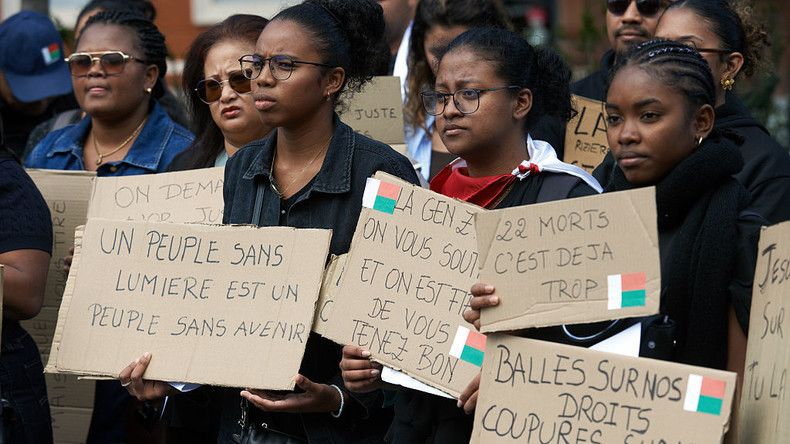 JUSTE
ON DEMA
UN PEUPLE SANS
LUMIERE EST UN
PEUPLE SANS AVENIR
LA GEN Z
ON VOUS SOUT
ET ON EST FI
DE VOUS
TENEZ BON
22 MORTS
C'EST DEJA
TROP
BALLES SUR NOS
DROITS
COUPURES
SUR
TU